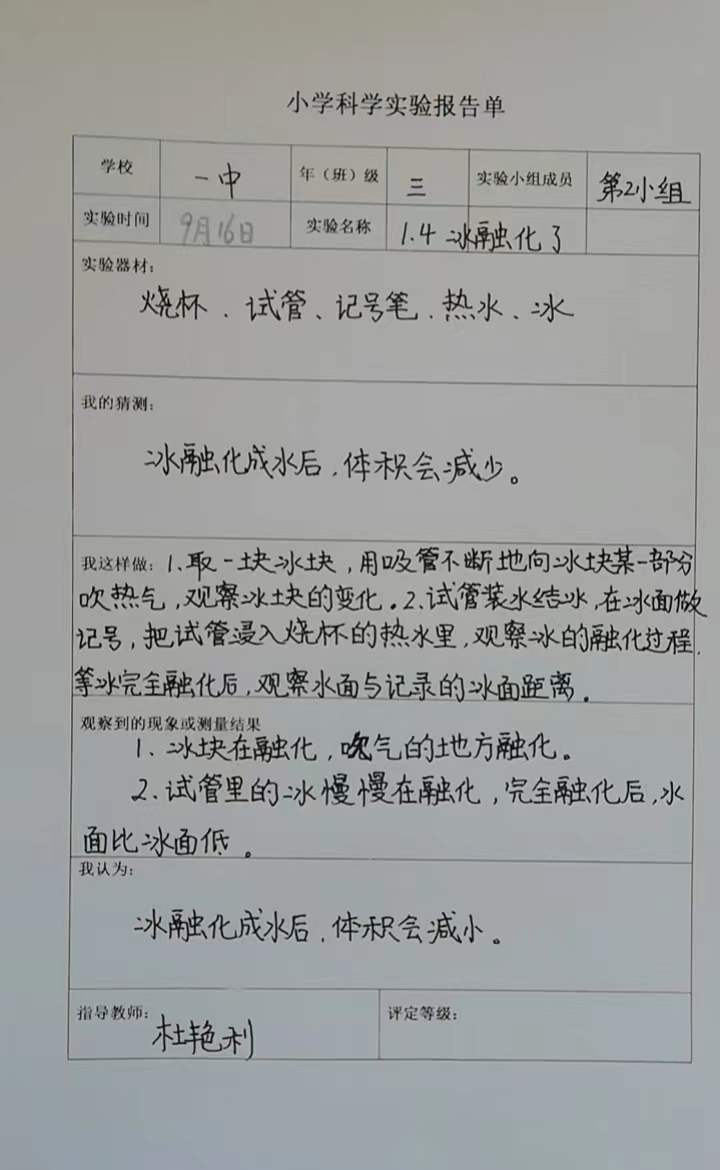 小学科学实验报告单
学校 一中 年（班）级 三 实验小组成员 第2小组
实验时间 9月16日 实验名称 1.4 冰融化了
实验器材：
烧杯、试管、记号笔、热水、冰
我的猜测：
冰融化成水后，体积会减少。
我这样做：1.取一块冰块，用吸管不断地向冰块某一部分
吹热气，观察冰块的变化。2.试管装水结冰，在冰面做
记号，把试管浸入烧杯的热水里，观察冰的融化过程，
等冰完全融化后，观察水面与记录的冰面距离。
观察到的现象或测量结果
1、冰块在融化，吹气的地方融化。
2.试管里的冰慢慢在融化，完全融化后，水
面比冰面低。
我认为：
冰融化成水后，体积会减小。
指导教师：杜艳利 评定等级：